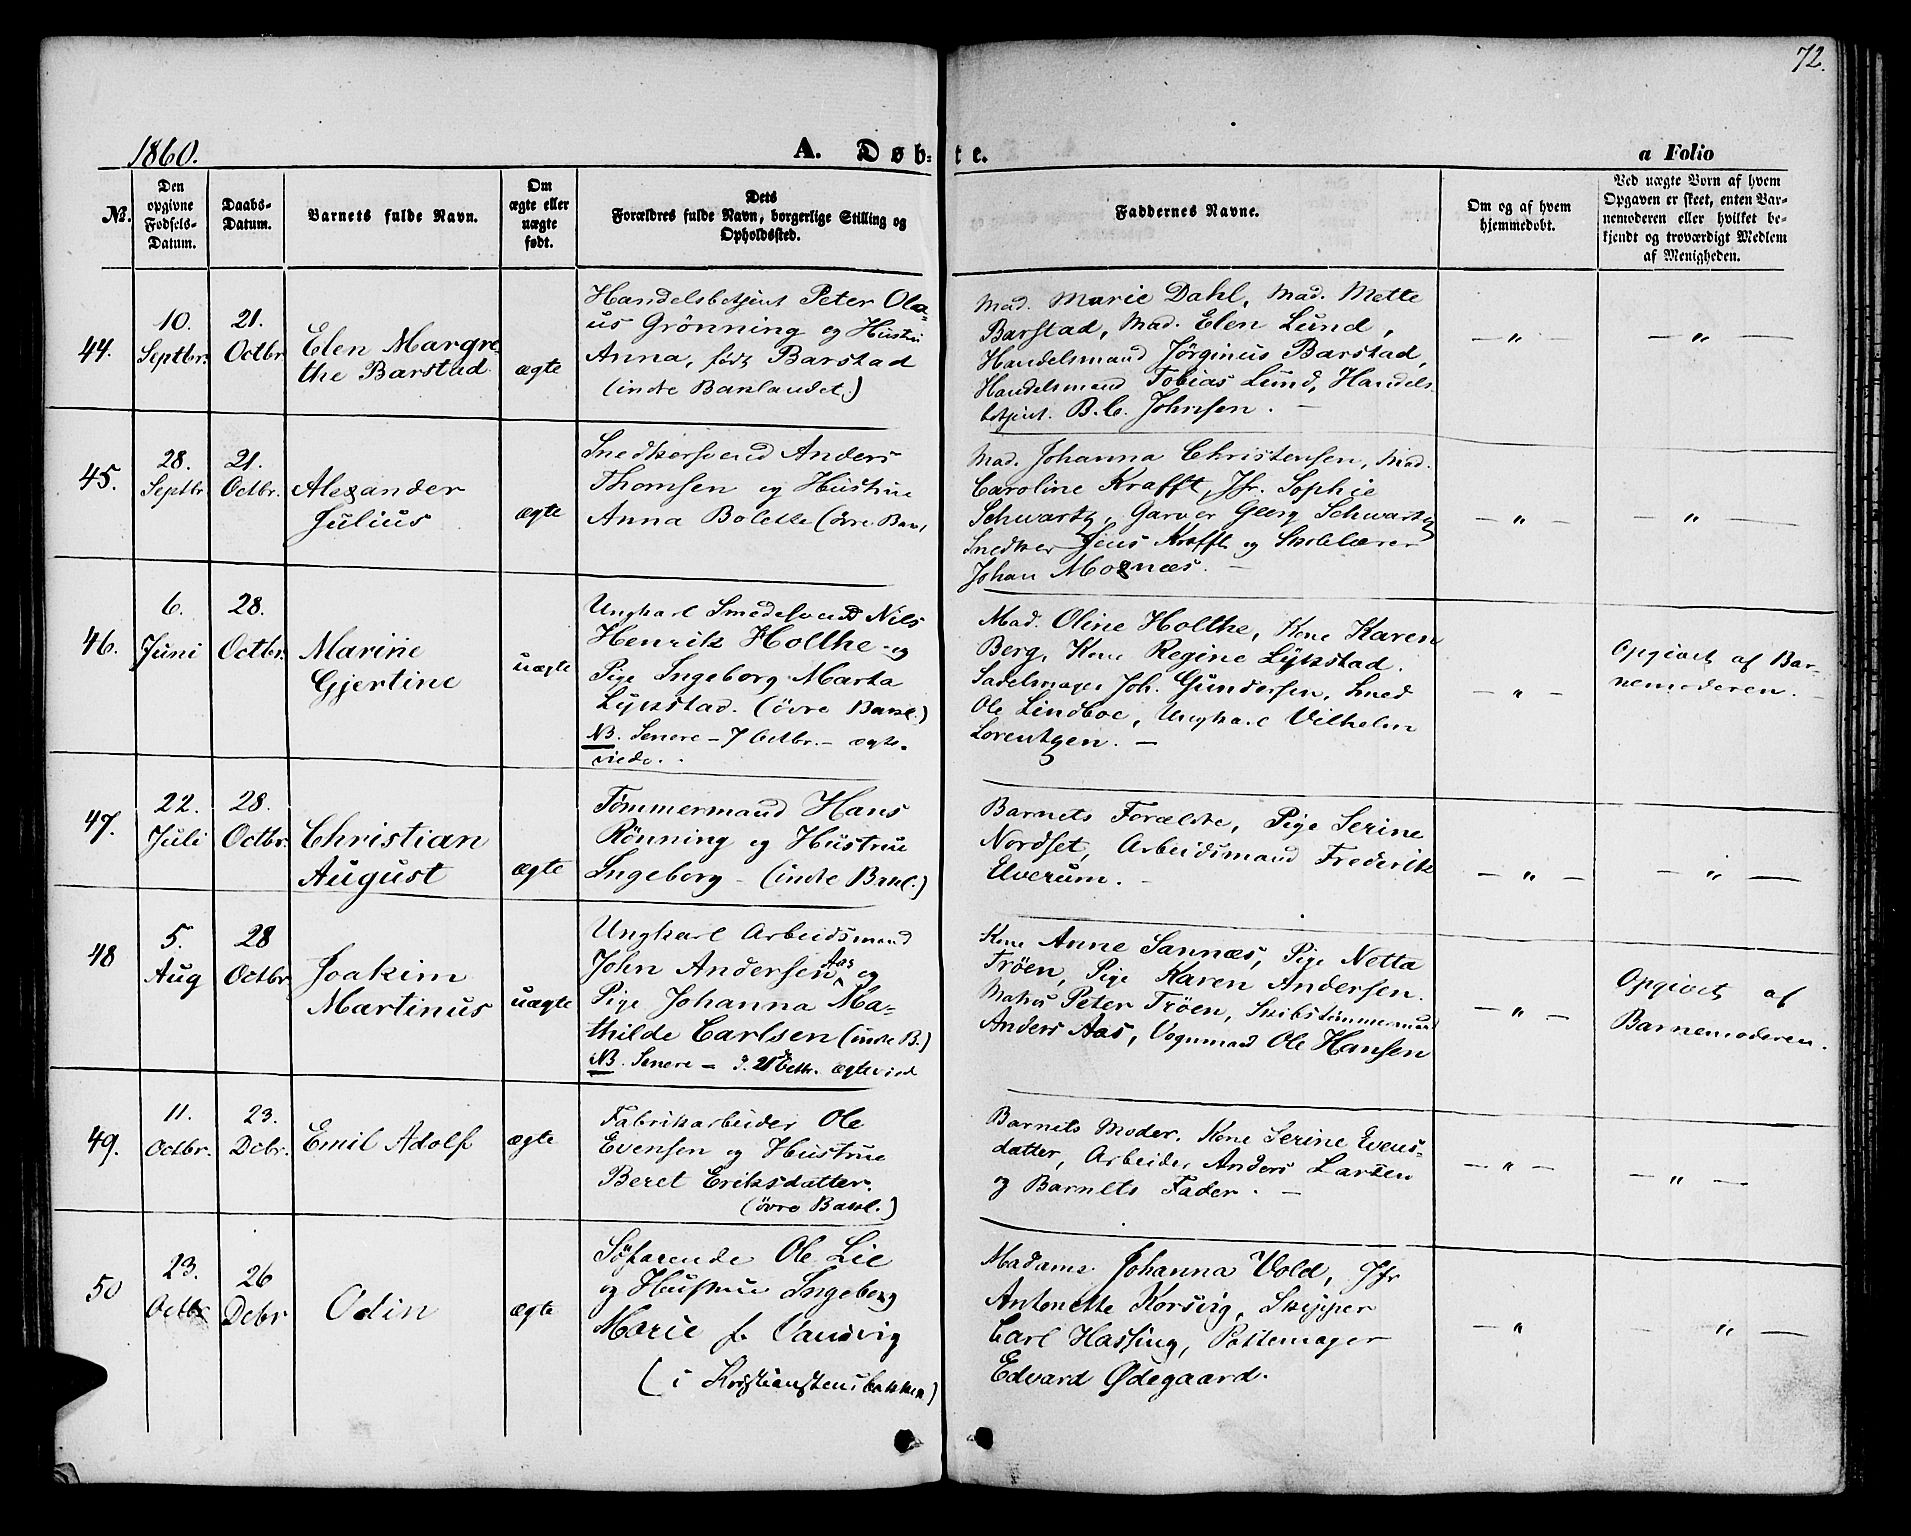 72.
1860.
A. Døb-
te.
a Folio
No.
Den opgivne Fødsels-Datum.
Daabs-Datum.
Barnets fulde Navn.
Om ægte eller uægte født.
Dets Forældres fulde Navn, borgerlige Stilling og Opholdssted.
Faddernes Navne.
Om og af hvem hjemmedøbt.
Ved uægte Børn af hvem Opgaven er skeet, enten Barnemoderen eller hvilket bekjendt og troværdigt Medlem af Menigheden.
44.
10.
Septbr.
21.
Octbr
Elen Margre-
the Barstad
ægte
Handelsbetjent Peter Ola-
us Grönning og Hustru
Anna, født Barstad
(indre Baklandet.)
Mad. Marie Dahl, Mad. Mette
Barstad, Mad. Elen Lund,
Handelsmand Jørginus Barstad,
Handelsmand Tobias Lund, Handels-
betjent. B. C. Johnsen. –
— " —
— " —
45.
28.
Septbr
21.
Octbr.
Alexander
Julius
ægte
Snedkersvend Anders
Thomsen og Hustrue
Anna Bolette (övre Bak.
Mad. Johanna Christensen, Mad.
Caroline Krafft, Jfr. Sophie
Schwartz, Garver Georg Schwartz
Snedker Jens Krafft og Skolelærer
Johan Moxnæs. –
— " —
— " —
46.
6.
Juni
28.
Octbr.
Marine
Gjertine
uægte
Ungkarl Smedesvend Nils
Henrik Holthe og
Pige Ingeborg Marta
Lykstad. (övre Bakl.)
NB. Senere – 7 Octbr. – ægte-
viede.
Mad. Oline Holthe, Kone Karen
Berg, Kone Regine Lykstad.
Sadelmager Joh. Gundersen, Smed
Ole Lindboe, Ungkarl Vilhelm
Lorentzen. –
— " —
Opgivet af Bar-
nemoderen. –
47.
22.
Juli
28.
Octbr.
Christian
August
ægte
Tømmermand Hans
Rönning og Hustrue
Ingeborg – (indre Bakl.)
Barnets Forældre, Pige Serine
Nordset, Arbeidsmand Frederik
Elverum. –
— " —
— " —
48
5.
Aug
28
Octbr
Joakim
Martinus
uægte
Ungkarl Arbeidsmand
John Andersen Aas og
Pige Johanna Ma-
thilde Carlsen (indre B.)
NB. Senere – d. 21de Octbr. ægteviet
Kone Anne Sannæs, Pige Netta
Tröen, Pige Karen Andersen.
Matros Peter Tröen, Skibstömmermand
Anders Aas, Vognmand Ole Hansen
— " —
Opgivet af
Barnemoderen.
49.
11.
Octbr.
23.
Dcbr.
Emil Adolf
ægte
Fabrikarbeider Ole
Evensen og Hustrue
Beret Eriksdatter.
(övre Bakl.)
Barnets Moder. Kone Serine Evens-
datter, Arbeider Anders Larsen
og Barnets Fader. –
— " —
— " —
50
23.
Octbr
26
Dcbr
Odin
ægte
Söfarende Ole Lie
og Hustrue Ingeborg
Marie f. Vandvig
(i Kristianstensbakken)
Madame Johanna Vold, Jfr
Antonette Korsvig, Skipper
Carl Hassing, Pottemager
Edvard Ødegaard.
— " —
— " —